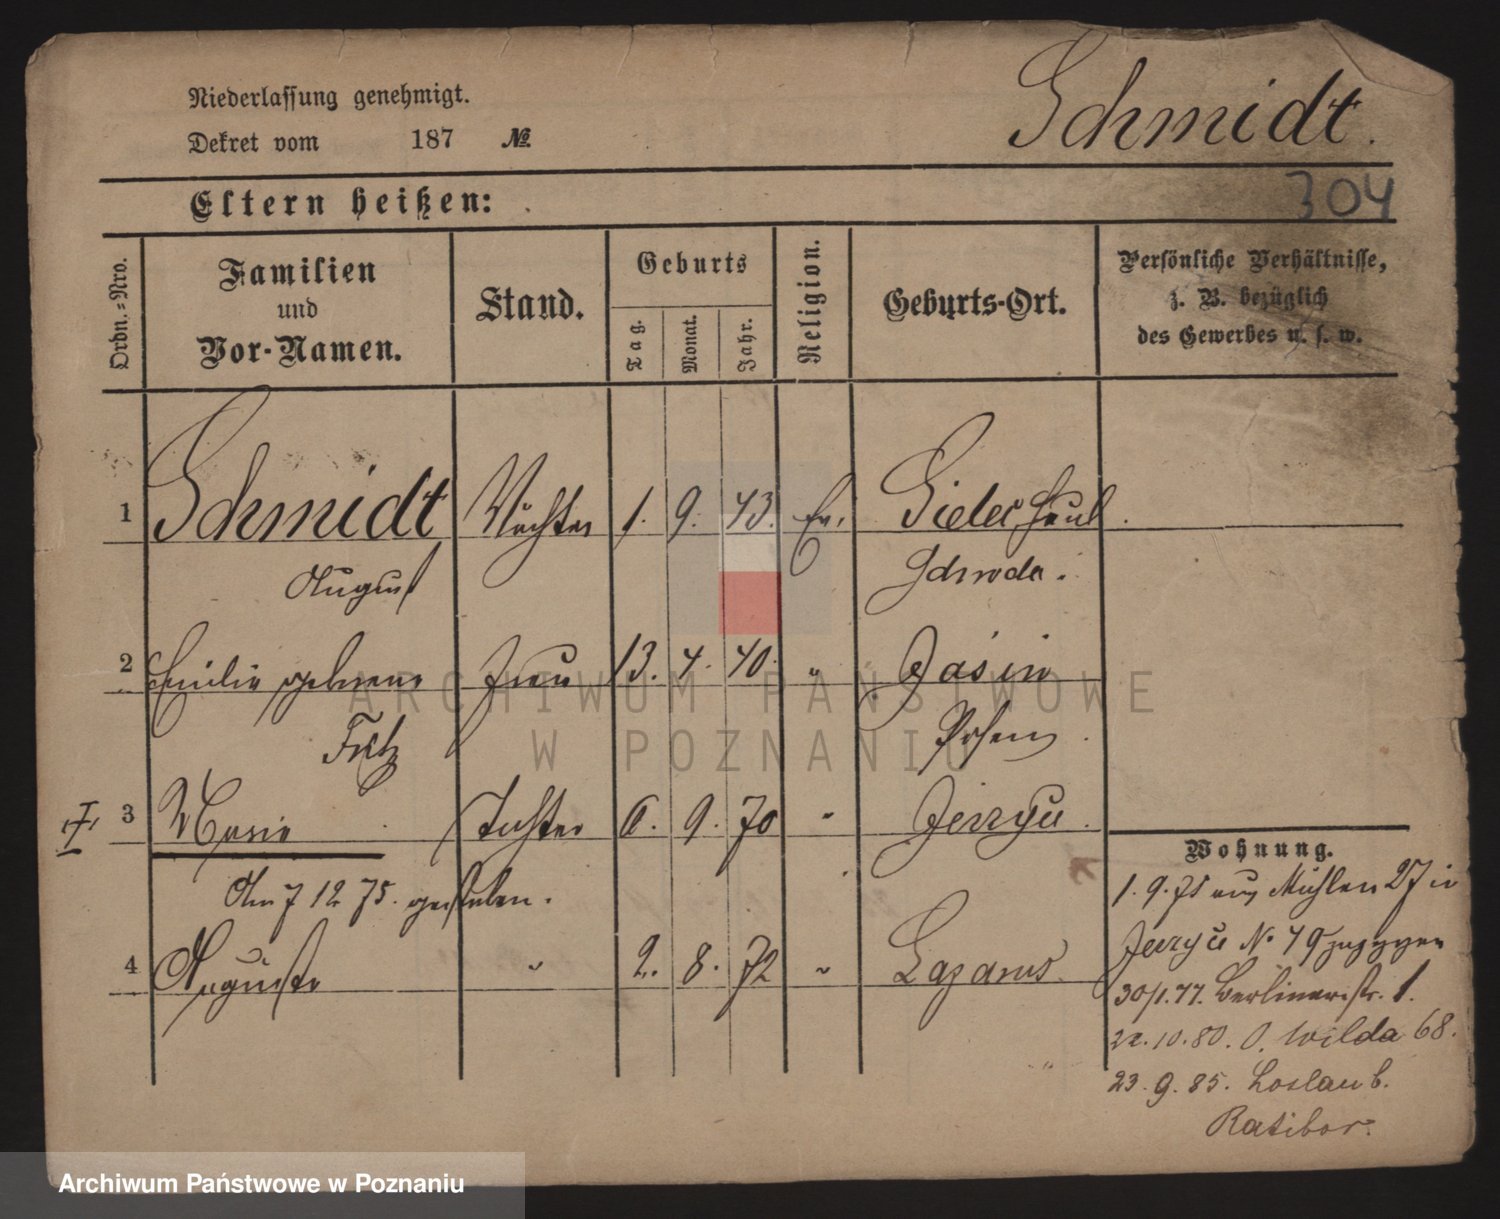 Niederlassung genehmigt.
Dekret vom 187 №
Schmidt.
304
Eltern heißen:
Ordn.-Nro.
Familien
und
Vor-Namen.
Stand.
Geburts
Tag.
Monat.
Jahr.
Religion.
Geburts-Ort.
Persönliche Verhältnisse,
z. B. bezüglich
des Gewerbes u. s. w.
1 Schmidt Wächter 1. 9. 43. Ev.
August
2 Emilie geborene Frau 13. 4. 40. " Zasin
Fritz Posen.
3 Marie Tochter 6. 9. 70 " Jerzyce.
Am 7 12 75. gestorben.
4 Auguste " 2. 8. 72 " Lazarus.
Wohnung.
1. 9. 75 aus Mühlen 27 in
Jerzyce No 49 zugezogen
30/1.77. Berlinerstr. 1.
22.10.80. O. Wilda 68.
23.9.85. Loslau b.
Ratibor.
ARCHIWUM PAŃSTWOWE
W POZNANIU
Archiwum Państwowe w Poznaniu